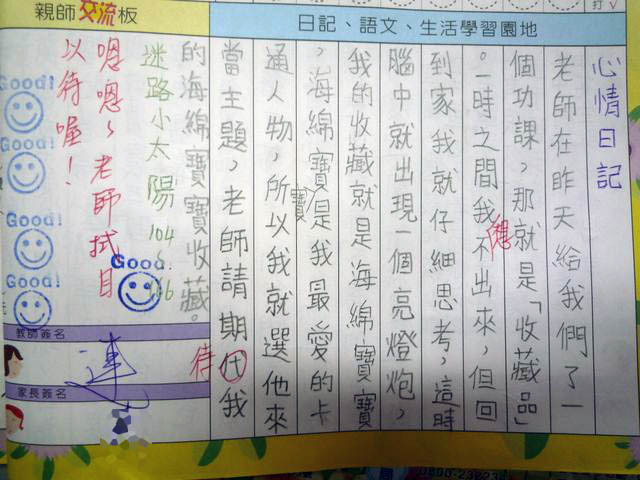 日記、語文、生活學習園地
心情日記
老師在昨天給我們了一
個功課，那就是「收藏品」
。一時之間我想不出來，但回
到家我就仔細思考，這時
腦中就出現一個亮燈炮，
我的收藏就是海綿寶寶
，海綿寶寶是我最愛的卡
通人物，所以我就選他來
當主題，老師請期代我
待
的海綿寶寶收藏。
迷路小太陽
親師交流板
嗯嗯~老師拭目
以待喔！
Good!
Good!
Good!
Good!
Good!
教師簽名
連
家長簽名